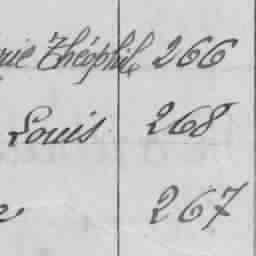 Théophile 266
Louis 268
267